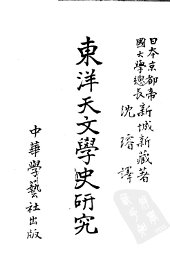 日本京都帝
國大學總長 新城新藏著
沈璿譯
東洋天文學史研究
中華學藝社出版